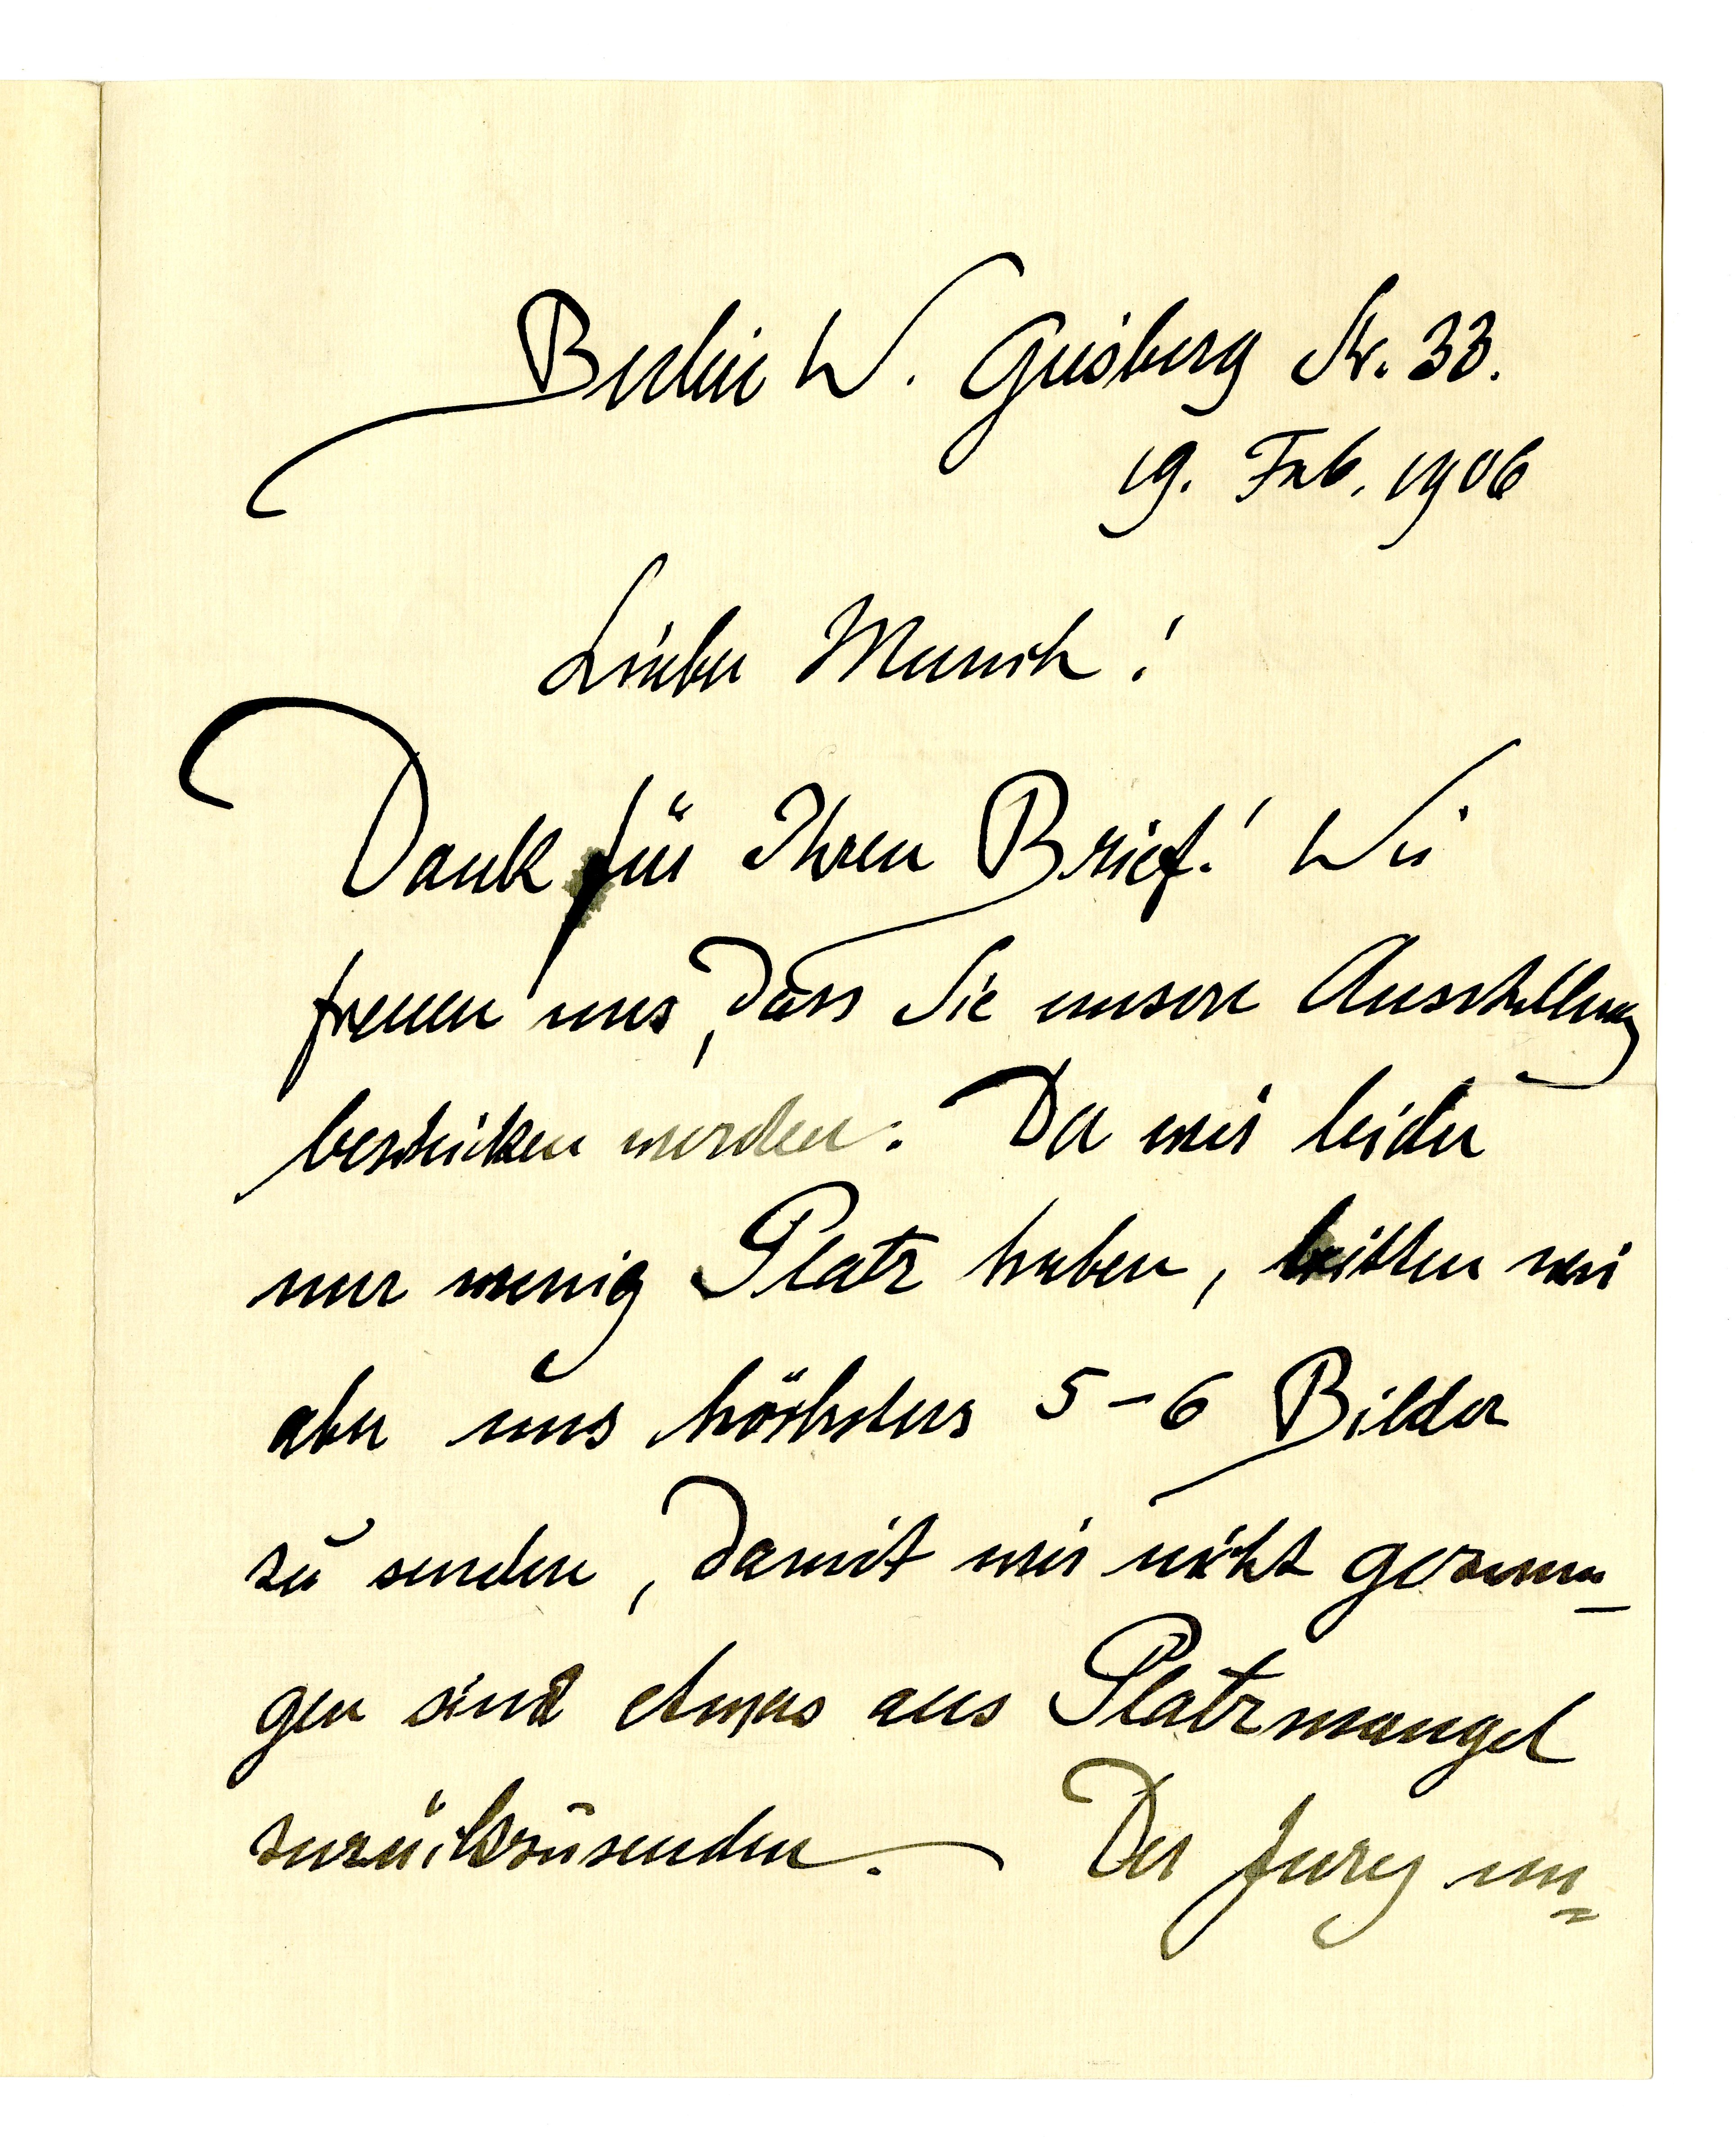 Berlin W. Geisberg Str. 33.
19. Feb. 1906
Lieber Munch!
Dank für Ihren Brief! Wir
freuen uns, dass Sie unsere Ausstellung
beschicken werden. Da wir leider
nur wenig Platz haben, bitten wir
aber uns höchstens 5-6 Bilder
zu senden, damit wir nicht gezwun-
gen sind etwas aus Platzmangel
zurückzusenden. — Der Jury un=